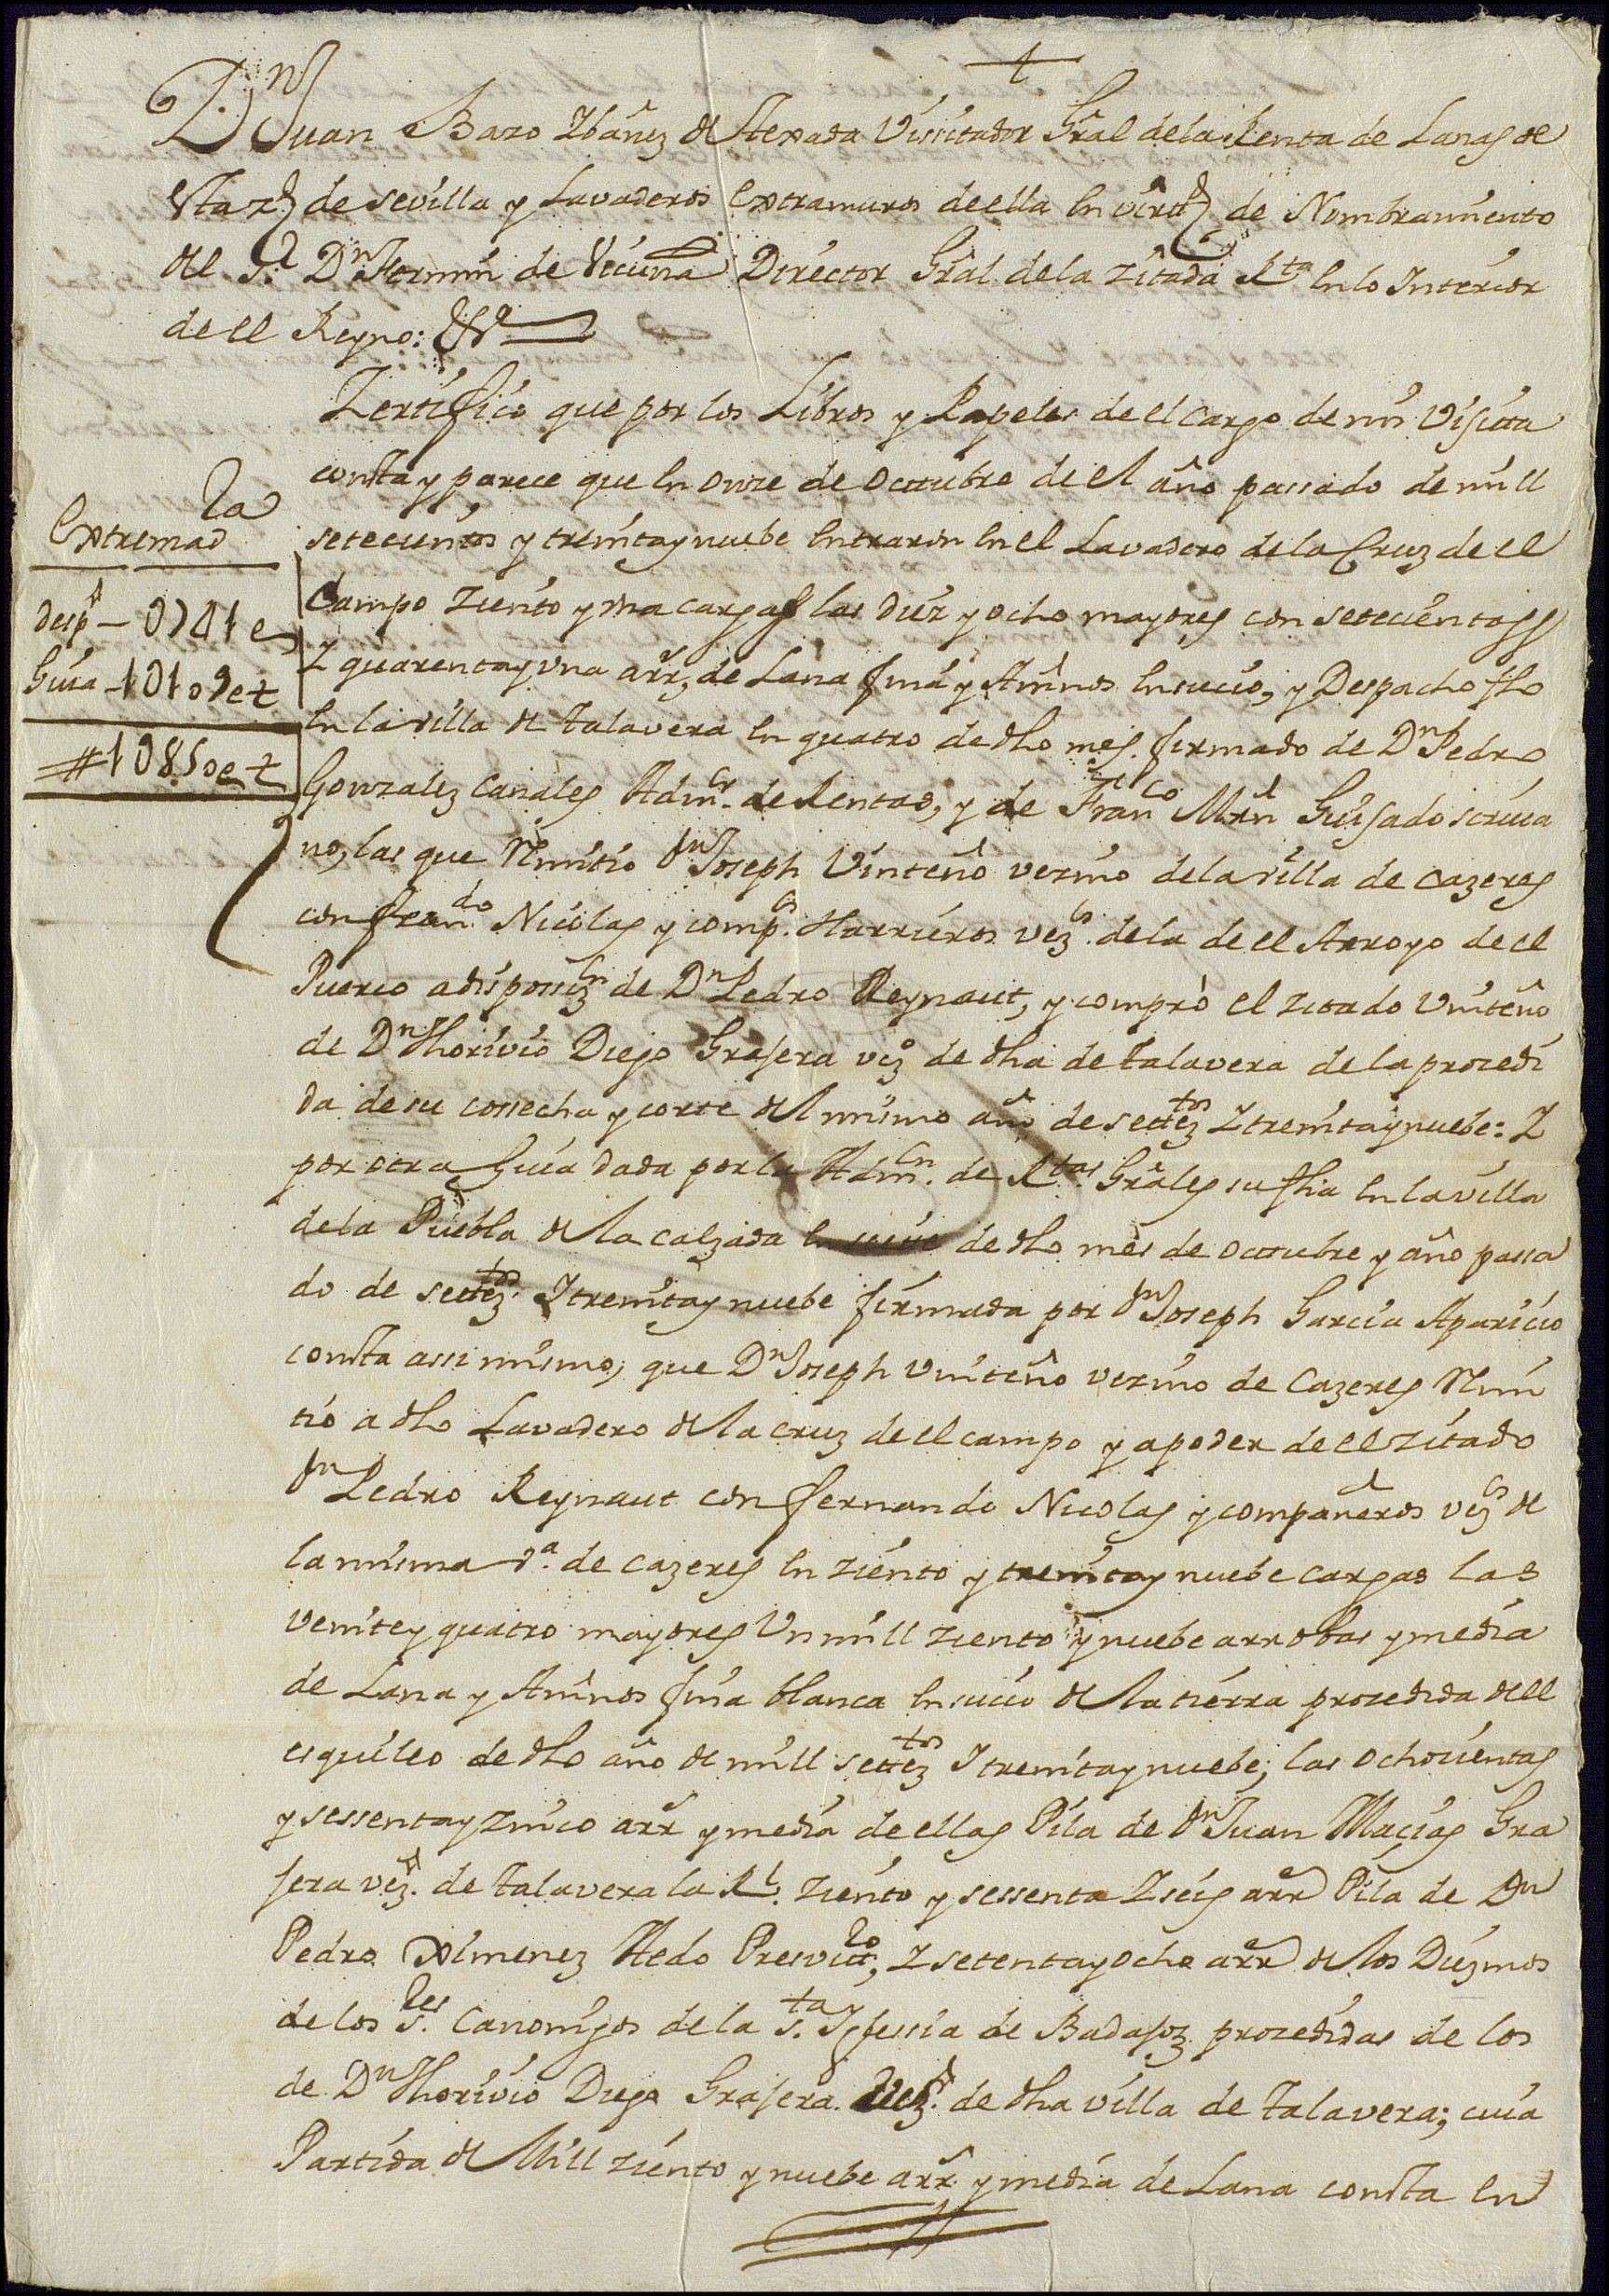 +
Dn Juan Bazo Ybáñez de Texada Vissitador Gral de la Renta de Lanas de
esta zd de sevilla y Lavaderos extramuros de ella en virtd de Nombramiento
del Sr Dn Fermin de Vicuña Director Gral de la zitada Rta en lo Interior
de el Reyno: &a
Zertifico que por los Libros y Papeles de el cargo de mi Visita
consta y parece que en onze de octtubre de el año passado de mill
setecientos y treinta y nuebe entraron en el Lavadero de la Cruz de el
Campo ziento y una cargas las diez y ocho mayores con setecientas
Y quarenta y una arrs de Lana fina y Aninos en sucio, y Despacho fho
en la villa de talavera en quatro de dho mes firmado de Dn Pedro
Gonzalez Canales Admor de Rentas, y de Franco Mrn Guisado scriua
no, las que Remitio Dn Joseph Vinteño vezino de la villa de Cazeres
con Fernando Nicolas y comps Harrieros vezs de la de el Arroyo de el
Puerco a disposizn de Dn Pedro Reynaut, y compró el zitado Vinteño
de Dn Thorivio Diego Grajera vezo de dha de talavera de la prozedi
da de su cossecha y corte del mismo año de settezos Y treinta y nuebe: Y
por otra Guia dada por la Admon de Rtas Grales su fha en la villa
de la Puebla de la calzada en de dho mes de octtubre y año passa
do de settezos Y treinta y nuebe firmada por Dn Joseph Garcia Aparicio
consta assi mismo, que Dn Joseph Vinteño vezino de Cazeres Remi
tió a dho Lavadero de la cruz de el campo y a poder de el zitado
Dn Pedro Reynaut con fernando Nicolas y compañeros vezs de
la misma va de cazeres en ziento y treinta y nuebe cargas las
veinte y quatro mayores Un mill ziento y nuebe arrobas y media
de Lana y Aninos fina blanca en sucio de la tierra prozedida del
esquileo de dho año de mill settezos Y treinta y nuebe; las ochozientas
y sessenta y zinco arrs y media de ellas Pila de Dn Juan Maçias Gra
jera vezo de talavera la Rl ziento y sessenta Y seis arrs Pila de Dn
Pedro Ximenez Hedo Presvitto, Y setenta y ocho arrs de los Diezmos
de los Sres Canonigos de la Sta Yglessia de Badajoz prozedidas de los
de Dn Thorivio Diego Grajera vezo de dha villa de talavera; cuia
Partida de Mill ziento y nuebe arrs y media de Lana consta en
Extremadra
despo — 0741 @
Guia — 1 109 @ ½
# 1 850 @ ½